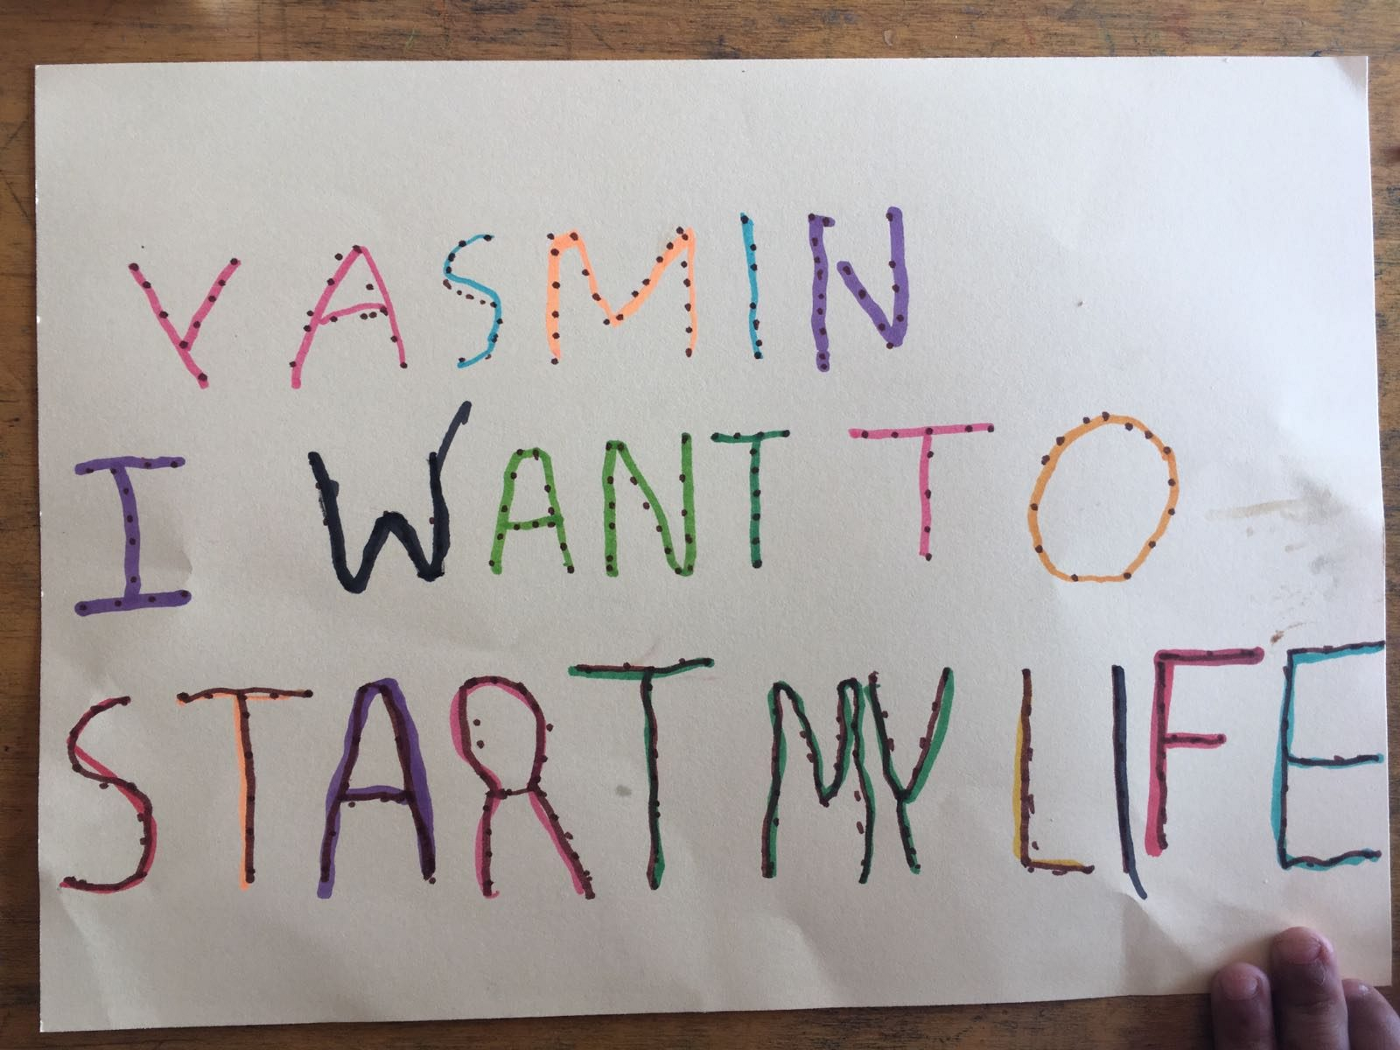 YASMIN
I WANT TO
START MY LIFE